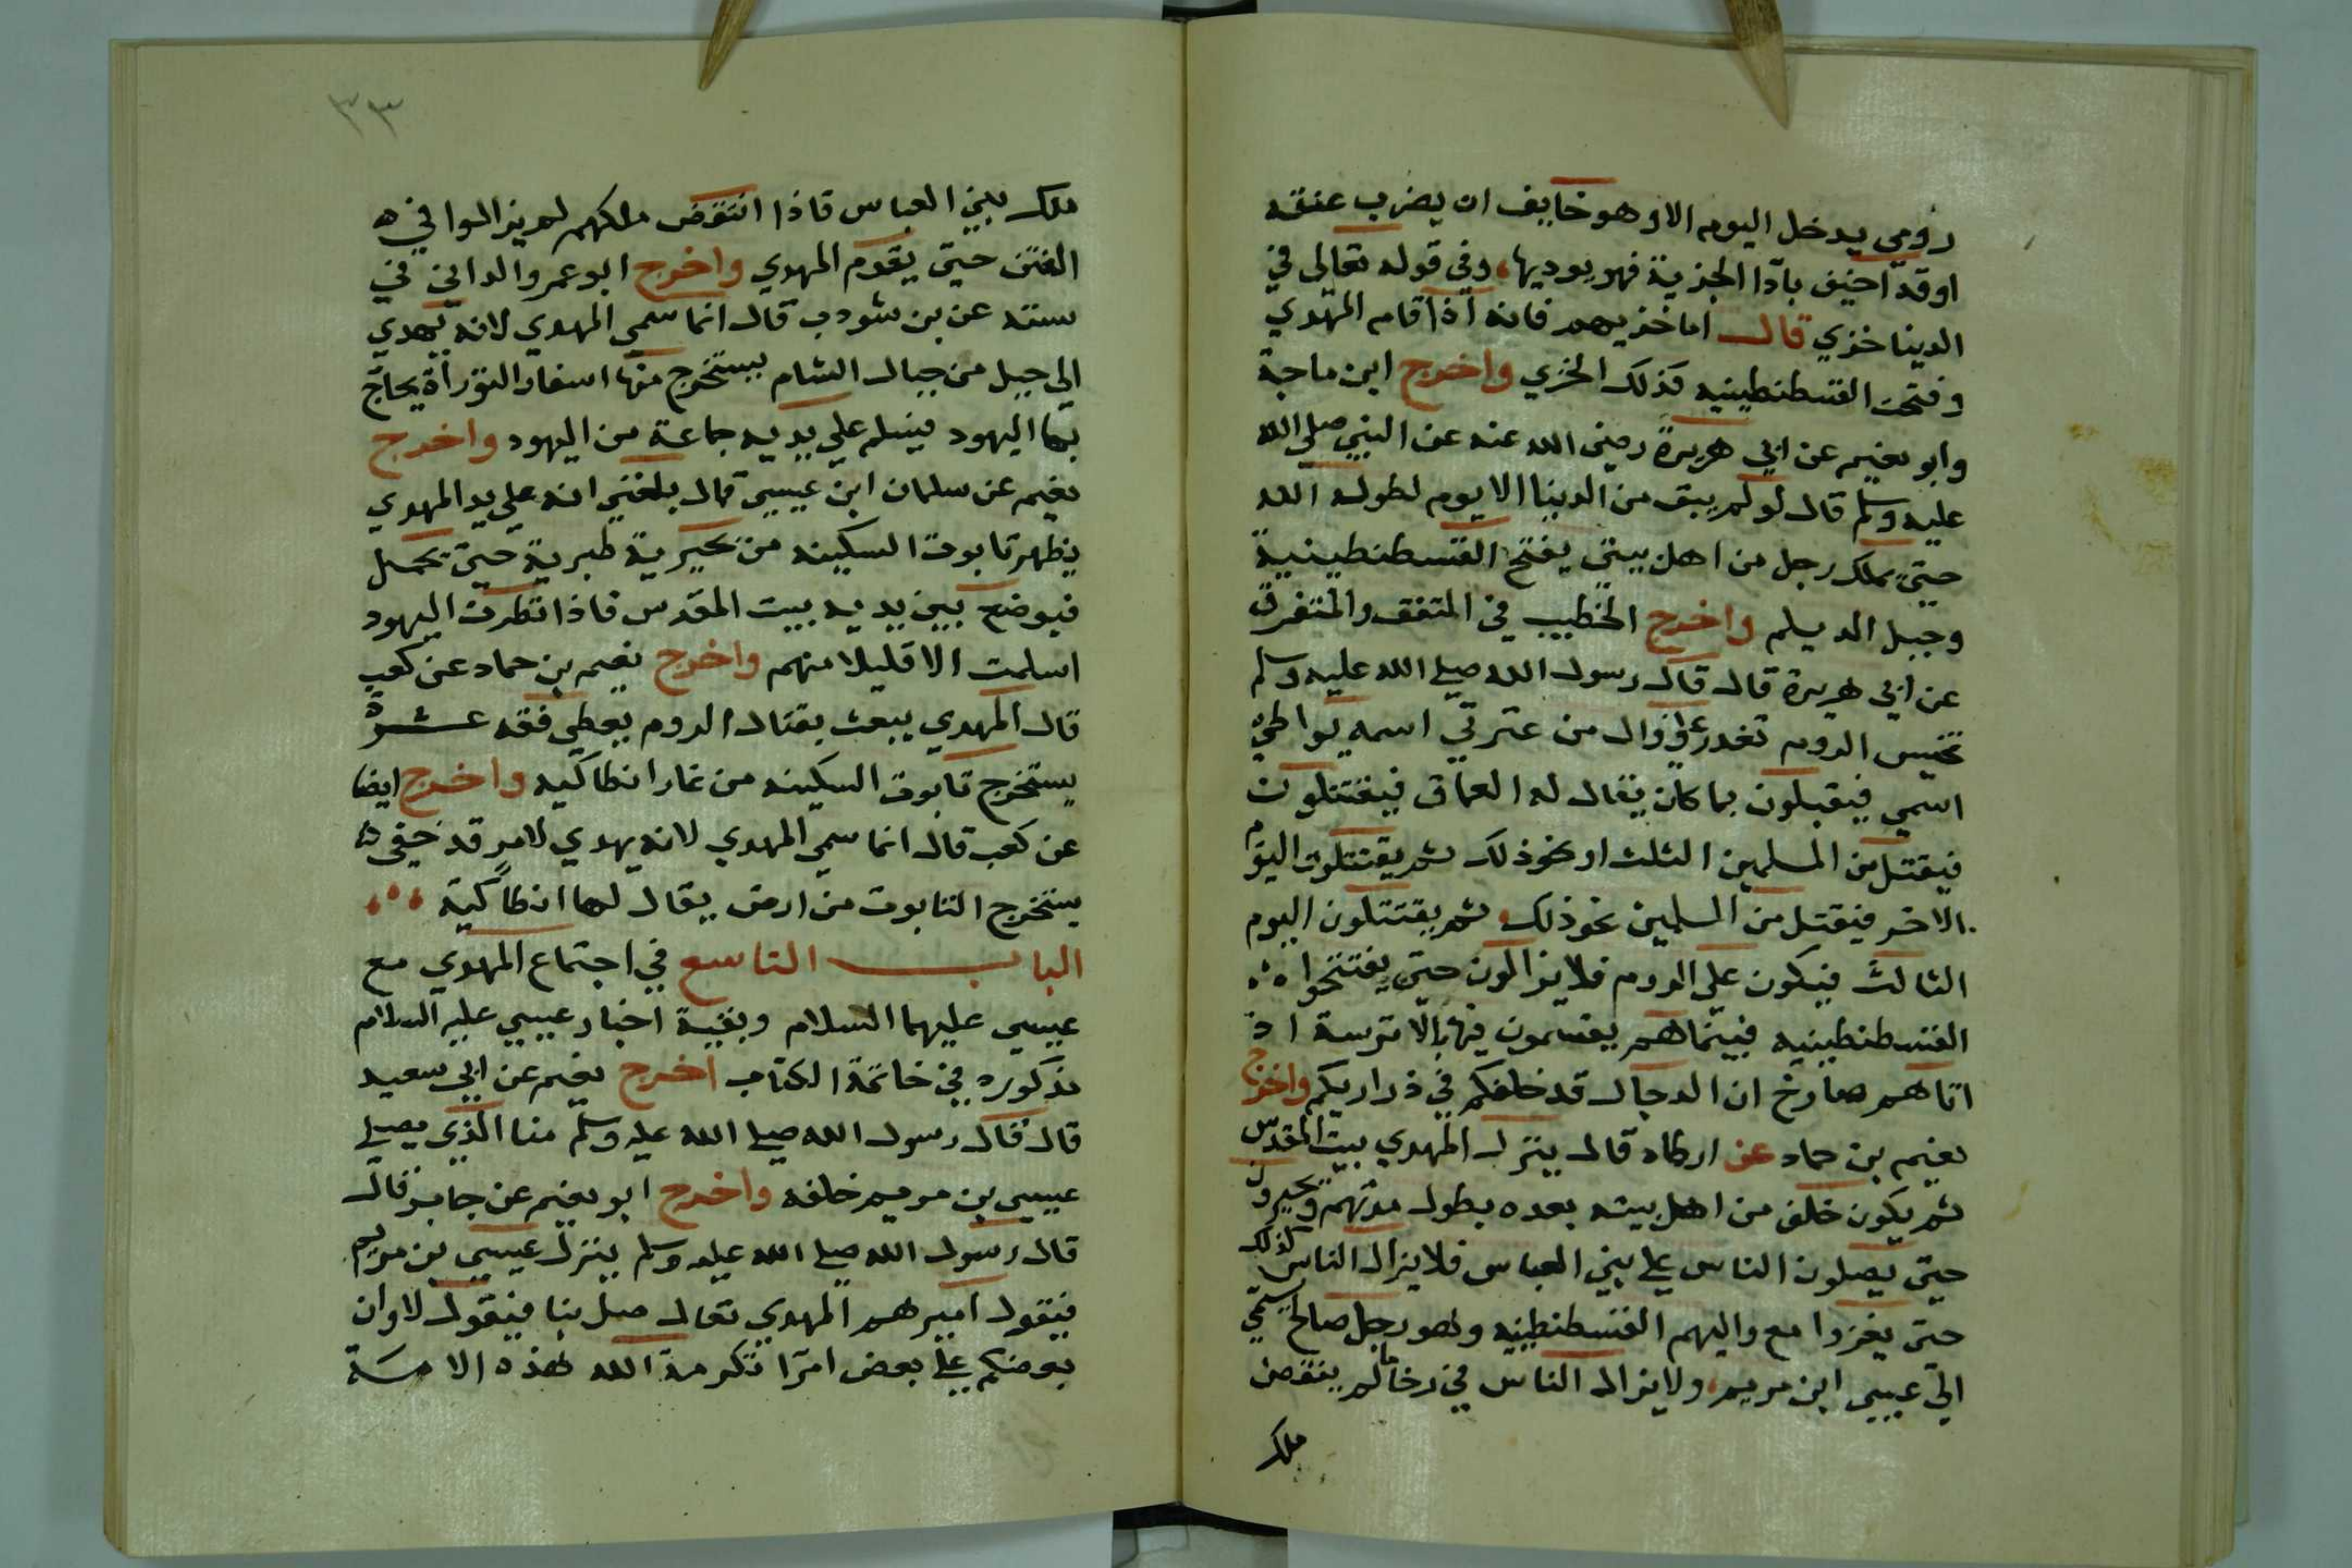 رومي يدخل اليوم الا وهو خايف ان يضرب عنقه
او قد اخيف بآدا الجزية فهو يوديها، وفي قوله تعالى في
الدينا خزي قال اما خزيهم فانه اذا قام المهدي
وفتحت القسطنطينيه فذلك الخزي واخرج ابن ماجة
وابو نعيم عن ابي هريرة رضى الله عنه عن النبي صلي الله
عليه وسلم قال لو لم يبق من الدنيا الا يوم لطوله الله
حتى يملك رجل من اهل بيتي يفتح القسطنطينية
وجبل الديلم واخرج الخطيب في المتفق والمتفرق
عن ابي هريرة قال قال رسول الله صلى الله عليه وسلم
تحبس الروم تغدر علي وال من عترتي اسمه يواطي
اسمي فيقبلون بما كان يقال له العماق فيقتتلون
فيقتل من المسلمين الثلث او نحو ذلك ثم يقتتلون اليوم
الاخر فيقتل من المسلمين نحو ذلك ثم يقتتلون اليوم
الثالث فيكون علي الروم فلا يزالون حتى يفتتحوا
القسطنطينيه فبينماهم يقتسمون فيها بالاترسة اذ
اتاهم صارخ ان الدجال قد خلفكم في ذراريكم واخرج
نعيم بن حماد عن ارطاه قال ينزل المهدي بيت المقدس
ثم يكون خلف من اهل بيته بعده بطول مدتهم ويجبرون
حتى يصلون الناس علي بني العباس فلا يزال الناس كذلك
حتى يغزوا مع واليهم القسطنطينيه وهو رجل صالح يسمي
الي عيسي ابن مريم، ولا يزال الناس في رخا ما لم ينتقض
ملك
٣٣
ملك بيني العباس فاذا انتقض ملكهم لم يزالوا في
الفتن حتى يقوم المهدي واخرج ابو عمرو الداني في
سننه عن بن شودب قال انما سمي المهدي لانه يهدي
الى جبل من جبال الشام يستخرج منها اسفار التوراة يحاج
بها اليهود فيسلم علي يديه جماعة من اليهود واخرج
نعيم عن سلمان ابن عيسي قال بلغني انه علي يد المهدي
يظهر تابوت السكينه من بحيرية طبرية حتى تحمل
فيوضع بين يديه بيت المقدس فاذا نظرت اليهود
اسلمت الا قليلا منهم واخرج نعيم بن حماد عن كعب
قال المهدي يبعث بقتال الروم يعطي فقه عشرة
يستخرج تابوت السكينه من غار انطاكيه واخرج ايضا
عن كعب قال انما سمي المهدي لانه يهدي لامر قد خفى
يستخرج التابوت من ارض يقال لها انطاكية
الباب التاسع في اجتماع المهدي مع
عيسي عليهما السلام وبقية اخبار عيسي عليه السلام
مذكوره في خاتمة الكتاب اخرج نعيم عن ابي سعيد
قال قال رسول الله صلي الله عليه وسلم منا الذي يصلي
عيسي بن مريم خلفه واخرج ابو نعيم عن جابر قال
قال رسول الله صلي الله عليه وسلم ينزل عيسي بن مريم
فيقول اميرهم المهدي تعال صل بنا فيقول لا وان
بعضكم علي بعض امرا تكرمة الله لهذه الامة